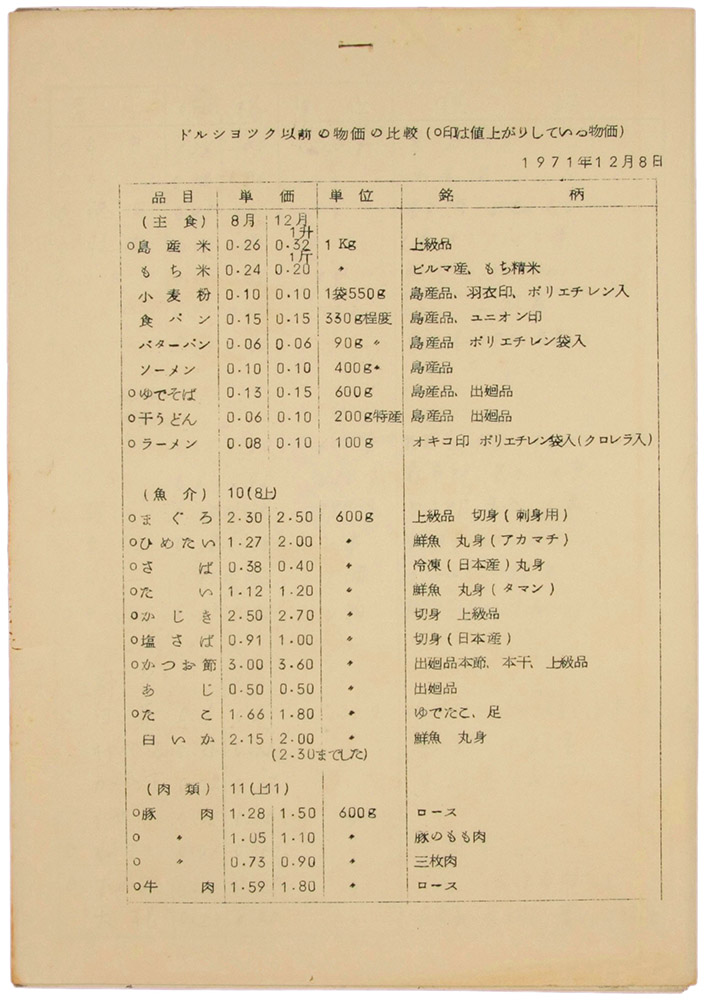 ドルショック以前の物価の比較(○印は値上がりしている物価)
1971年12月8日
品目 単価 単位 銘柄
(主食) 8月 12月
1升
○島産米 0.26 0.32 1Kg 上級品
1斤
もち米 0.24 0.20 〃 ビルマ産、もち精米
小麦粉 0.10 0.10 1袋550g 島産品、羽衣印、ポリエチレン入
食パン 0.15 0.15 330g程度 島産品、ユニオン印
バターパン 0.06 0.06 90g〃 島産品 ポリエチレン袋入
ソーメン 0.10 0.10 400g〃 島産品
○ゆでそば 0.13 0.15 600g 島産品、出廻品
○干うどん 0.06 0.10 200g特産 島産品 出廻品
○ラーメン 0.08 0.10 100g オキコ印 ポリエチレン袋入(クロレラ入)
(魚介) 10(8上)
○まぐろ 2.30 2.50 600g 上級品 切身(刺身用)
○ひめたい 1.27 2.00 〃 鮮魚 丸身(アカマチ)
○さば 0.38 0.40 〃 冷凍(日本産)丸身
○たい 1.12 1.20 〃 鮮魚 丸身(タマン)
○かじき 2.50 2.70 〃 切身 上級品
○塩さば 0.91 1.00 〃 切身(日本産)
○かつお節 3.00 3.60 〃 出廻品本節、本干、上級品
あじ 0.50 0.50 〃 出廻品
○たこ 1.66 1.80 〃 ゆでたこ、足
白いか 2.15 2.00 〃 鮮魚 丸身
(2.30までした)
(肉類) 11(上11)
○豚肉 1.28 1.50 600g ロース
○〃 1.05 1.10 〃 豚のもも肉
○〃 0.73 0.90 〃 三枚肉
○牛肉 1.59 1.80 〃 ロース